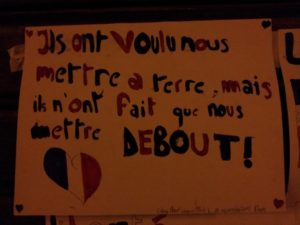 Ils ont voulu nous
mettre a terre, mais
ils n'ont fait que nous
mettre DEBOUT!